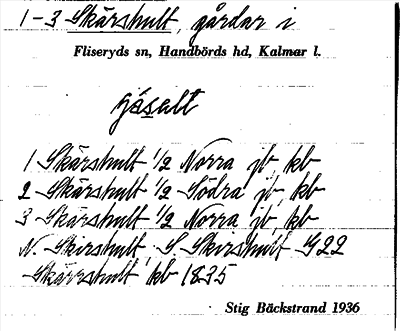 1-3 Skärshult, gårdar i
Fliseryds sn, Handbörds hd, Kalmar l.
jäsalt
1 Skärshult 1/2 Norra jb, kb
2 Skärshult 1/2 Södra jb, kb
3 Skärshult 1/2 Norra jb, kb
N. Skirshult, S. Skirshult G22
Skärshult, kb 1835
Stig Bäckstrand 1936